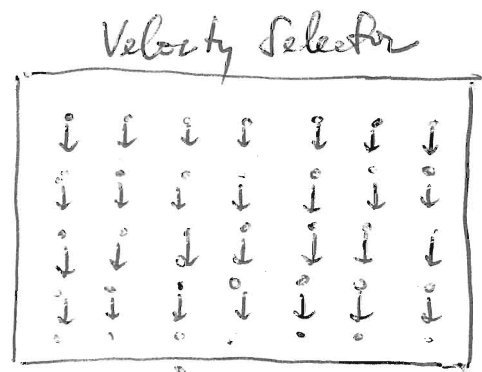 Velocity Selector